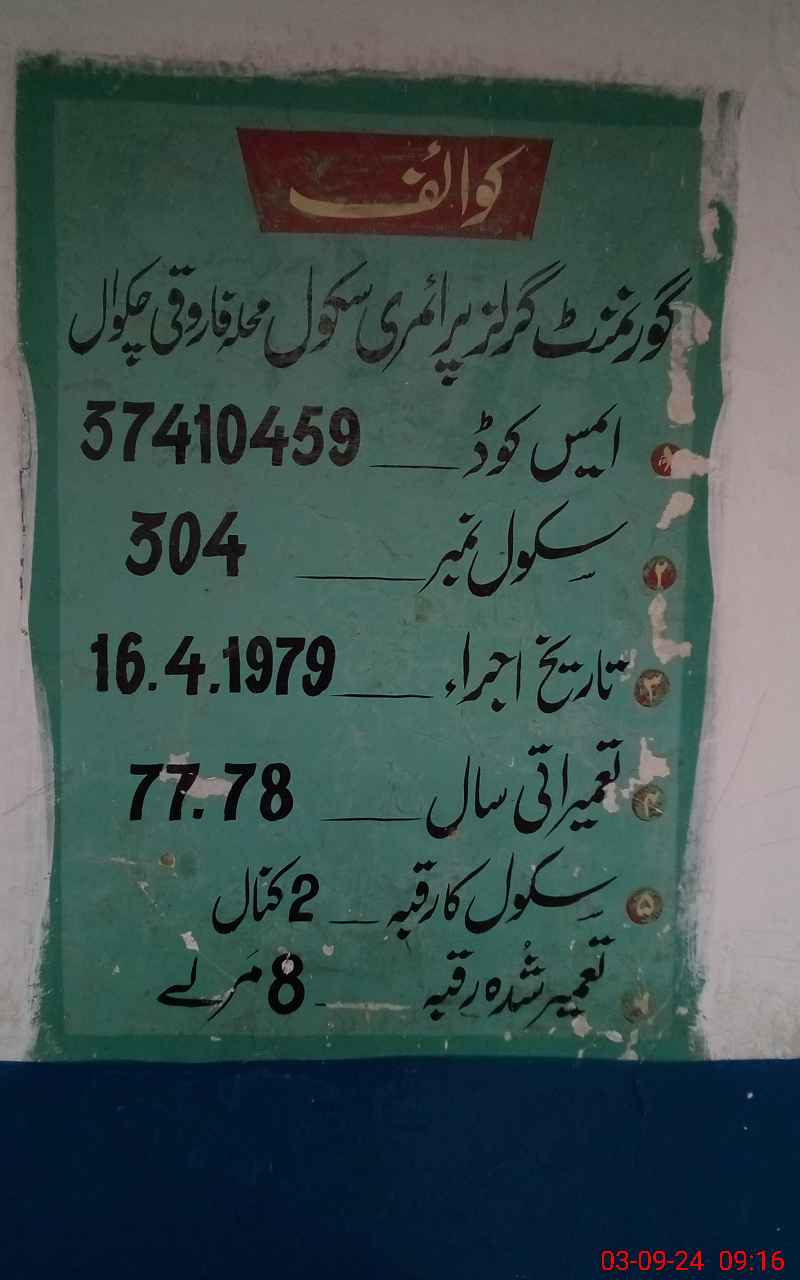 کوائف
گورنمنٹ گرلز پرائمری سکول محلہ فاروقی چکوال
۱ ایمس کوڈ ____ 37410459
۲ سکول نمبر ____ 304
۳ تاریخ اجراء ____ 16.4.1979
۴ تعمیراتی سال ____ 77.78
۵ سکول کا رقبہ __ 2 کنال
تعمیر شُدہ رقبہ ____ 8 مَرلے
03-09-24 09:16